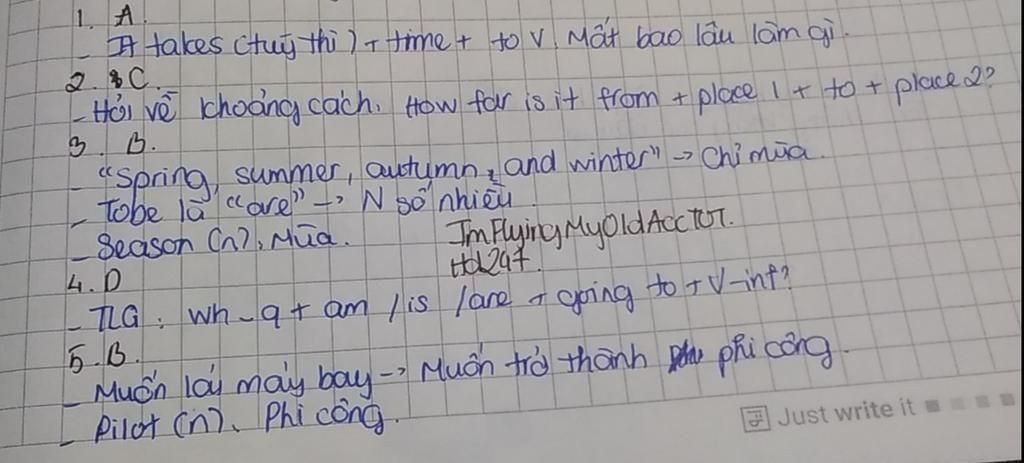 1. A.
- It takes (tuỳ thì) + time + to V. Mất bao lâu làm gì.
2. C.
- Hỏi về khoảng cách. How far is it from + place 1 + to + place 2?
3. B.
- "spring, summer, autumn, and winter" -> Chỉ mùa.
- Tobe là "are" -> N số nhiều.
- Season (n): Mùa.
ImFlyingMyOldAccTOT.
Hd247.
4. D
- TLG: Wh-q + am / is / are + going to + V-inf?
5. B.
- Muốn lái máy bay -> Muốn trở thành phi công.
- Pilot (n): Phi công.
Just write it